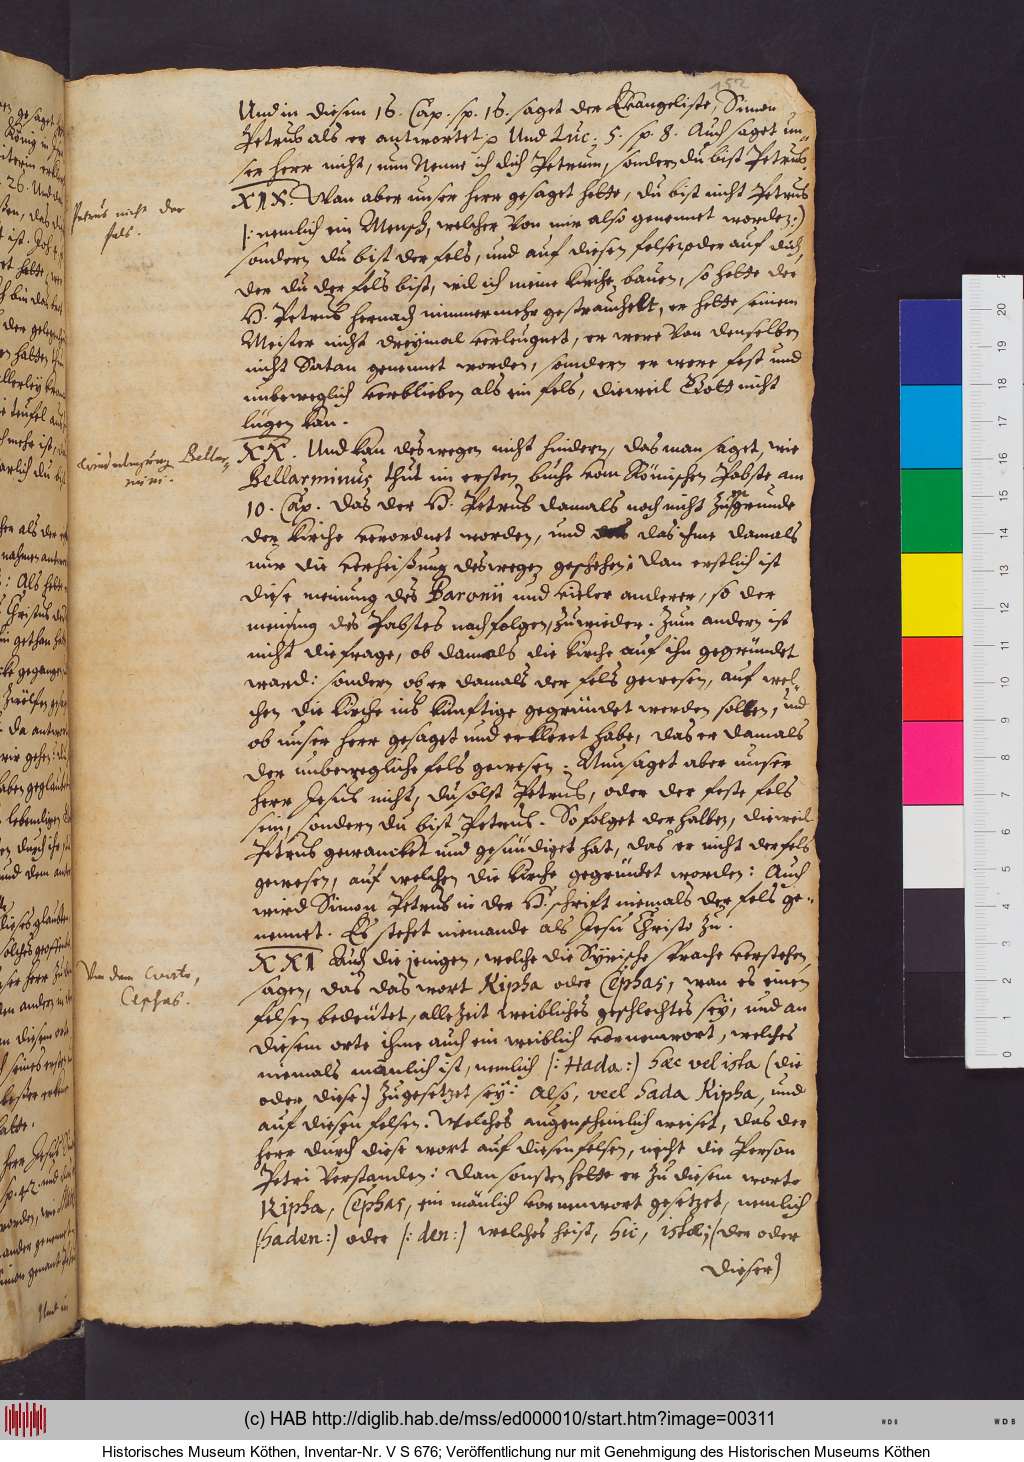 Und in diesem 16. Cap. sp. 16. saget der Evangeliste, Simon
Petrus als er antwortet: Und Luc. 5. sp. 8. Auch saget un-
ser herr nicht, nun Nenne ich dich Petrum, sondern du bist Petrus
XIX. Wan aber unser herr gesaget hette, du bist nicht Petrus
Petrus nicht der
fels.
/: nemlich ein Mensch, welcher von mir also genennet worden:)
sondern du bist der fels, und auf diesen felsen oder auf dich,
der du der fels bist, wil ich meine kirche bauen, so hette der
H. Petrus hernach nimmermehr gestrauchelt, er hette seinem
Meister nicht dreymal verleugnet, er were von denselben
nicht Satan genennet worden, sondern er were fest und
unbeweglich verblieben als ein fels, dieweil Gott nicht
lügen kan.
XX. Und kan deswegen nicht hindern, das man saget, wie
Bellar-
mini.
Bellarminus thut im ersten buche vom Römischen Pabste am
10. Cap. das der H. Petrus damals noch nicht zum grunde
der kirche verordnet worden, und das ihme damals
nur die verheißung deswegen geschehen: dan erstlich ist
diese meinung des Baronii und vieler anderer, so der
meinung des Pabstes nachfolgen, zuwieder. Zum andern ist
nicht die frage, ob damals die kirche auf ihn gegründet
ward: sondern ob er damals der fels gewesen, auf wel-
chen die kirche ins künftige gegründet werden sollen, und
ob unser herr gesaget und erkleret habe, das er damals
der unbewegliche fels gewesen: Nun saget aber unser
herr Jesus nicht, du solst Petrus, oder der feste fels
sein, sondern du bist Petrus. So folget derhalben, dieweil
Petrus gewancket und gesündiget hat, das er nicht der fels
gewesen, auf welchen die kirche gegründet worden: Auch
wird Simon Petrus in der H. schrift niemals der fels ge-
nennet. Es stehet niemande als Jesu Christo zu.
XXI Auch die jenigen, welche die Syrische sprache verstehen,
Von dem worte,
Cephas.
sagen, das das wort Kipha oder Cephas, wan es einen
felsen bedeutet, allezeit weibliches geschlechtes sey, und an
diesem orte ihme auch ein weiblich vornenwort, welches
niemals mänlich ist, nemlich /: Hada:) haec vel ista (die
oder diese) zugesetzet sey: Also, veel hada Kipha, und
auf diesen felsen. Welches augenscheinlich weiset, das der
herr durch diese wort auf diesen felsen, nicht die Person
Petri verstanden: dan sonsten hette er zu diesem worte
Kipha, Cephas, ein mänlich vornenwort gesetzet, nemlich
(haden:) oder /: den:) welches heist, hic, iste; (der oder
dieser)
(c) HAB http://diglib.hab.de/mss/ed000010/start.htm?image=00311
Historisches Museum Köthen, Inventar-Nr. V S 676; Veröffentlichung nur mit Genehmigung des Historischen Museums Köthen